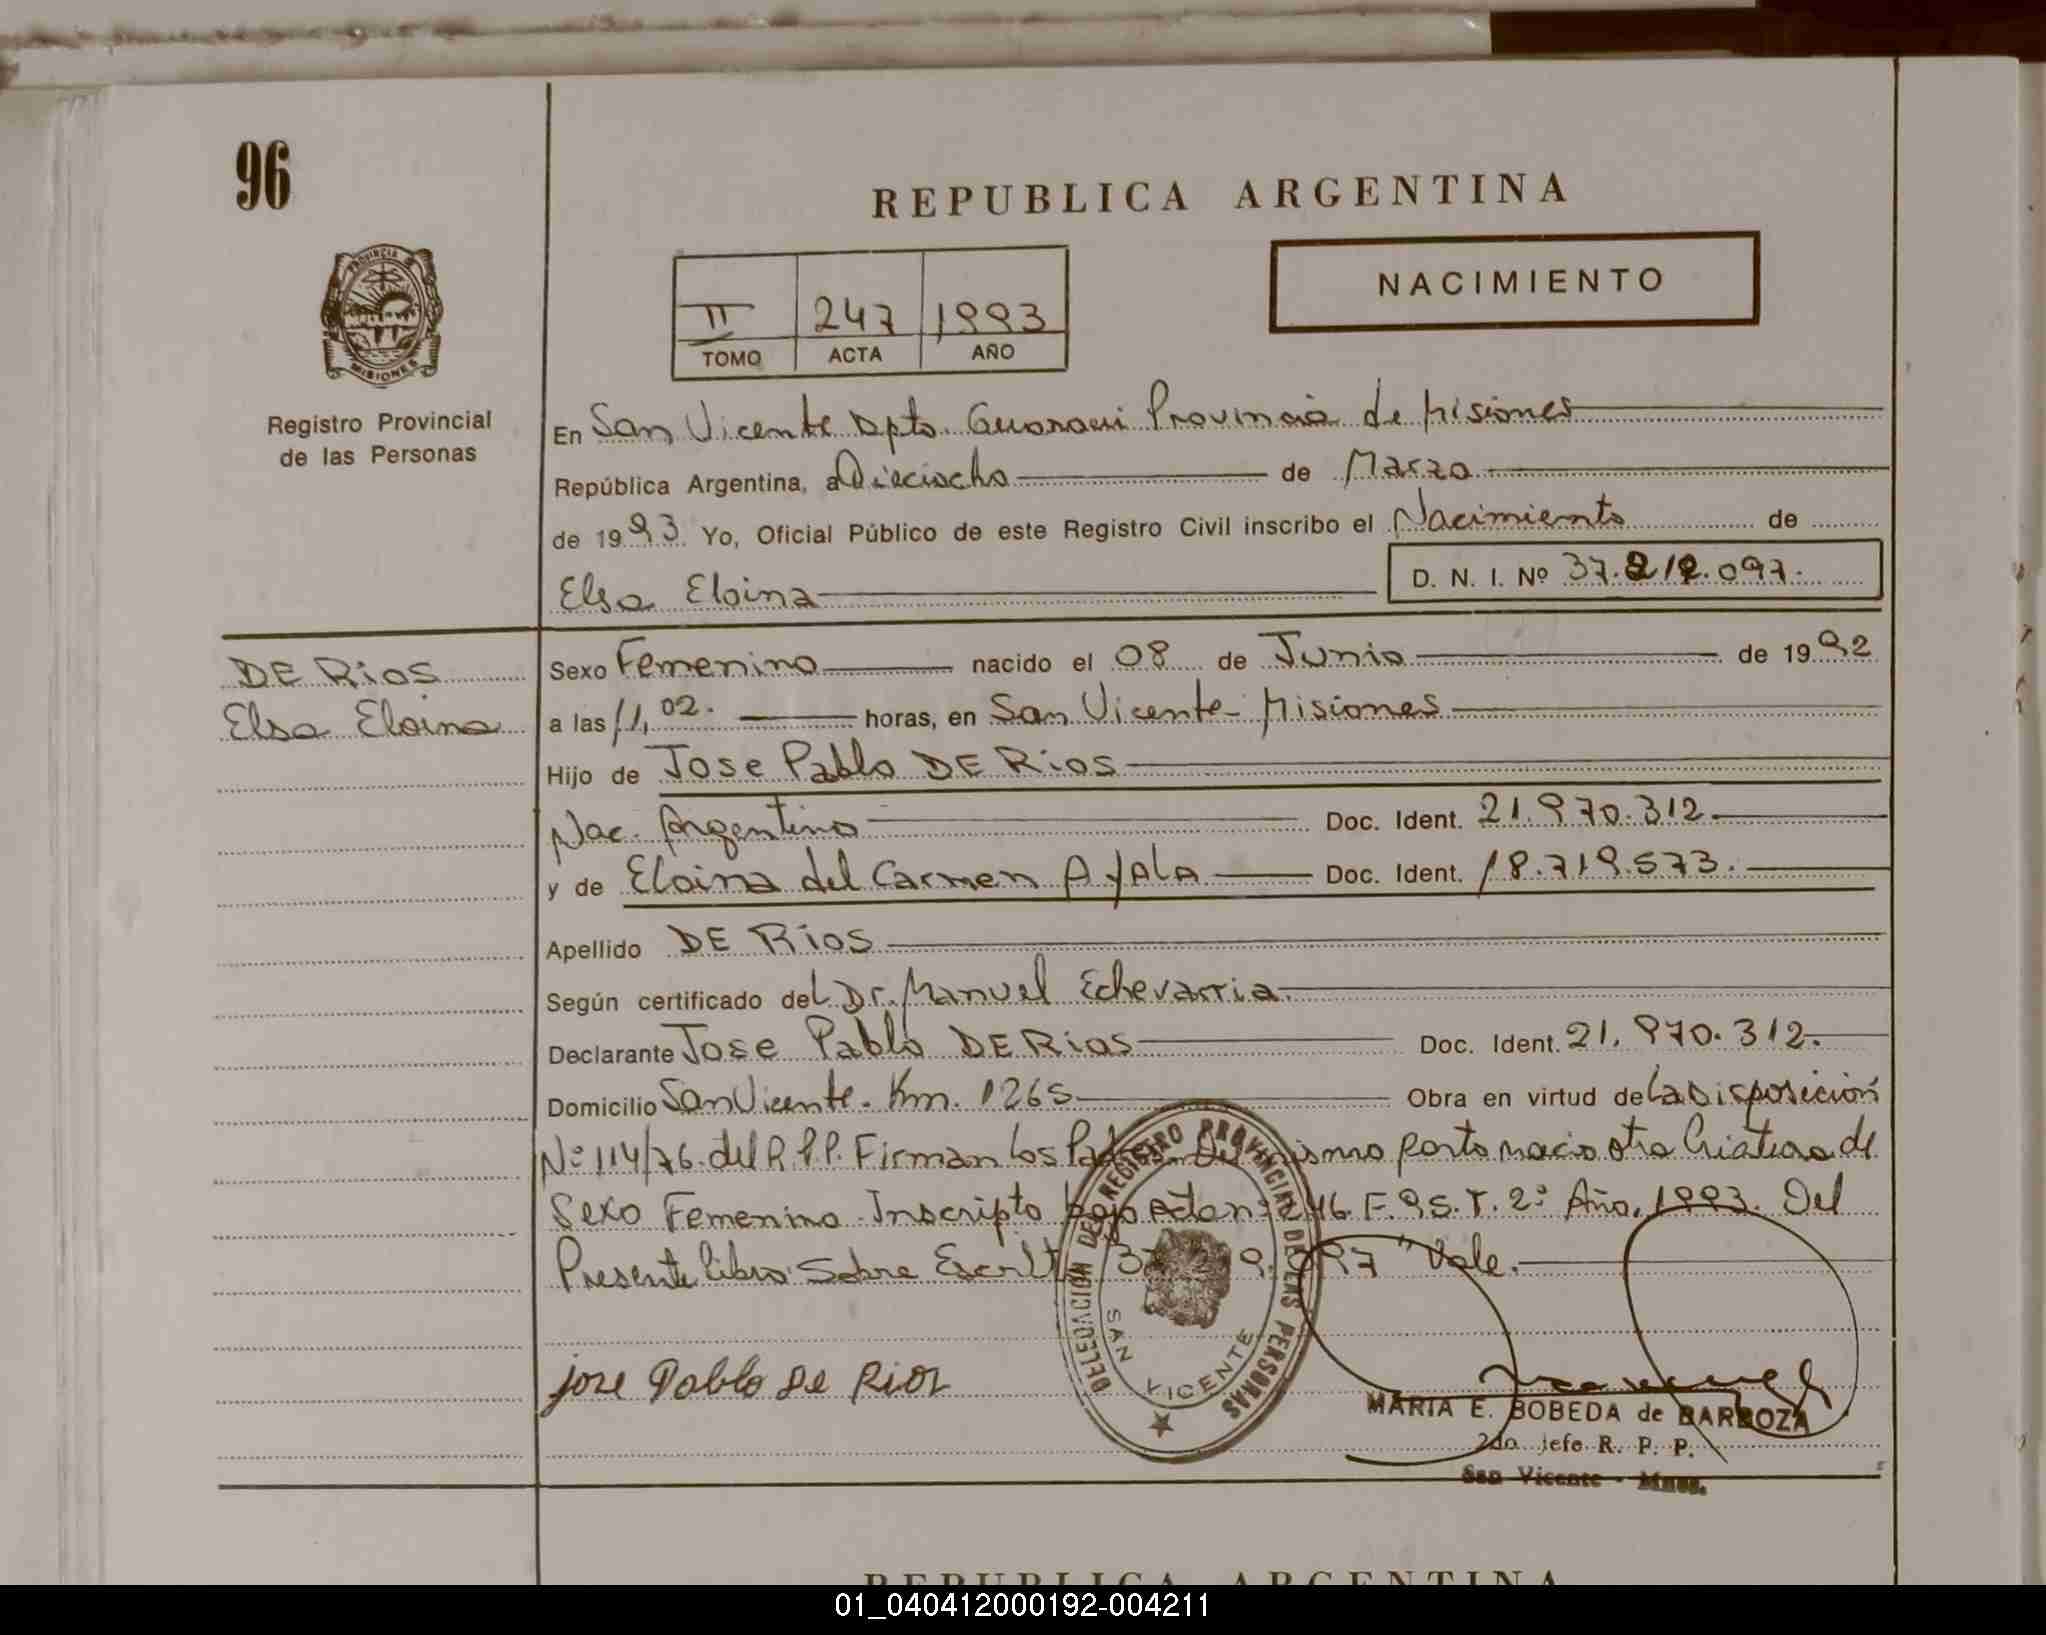 96
REPUBLICA ARGENTINA
NACIMIENTO
II 247 1993
TOMO ACTA AÑO
PROVINCIA DE
MISIONES
Registro Provincial
de las Personas
En San Vicente Dpto. Guarani Provincia de Misiones
República Argentina, a Dieciocho de Marzo
de 1993 Yo, Oficial Público de este Registro Civil inscribo el Nacimiento de
Elsa Eloina D. N. I. Nº 37.212.097.
DE Rios
Elsa Eloina
Sexo Femenino nacido el 08 de Junio de 1992
a las 11,02. horas, en San Vicente - Misiones
Hijo de Jose Pablo DE Rios
Nac. Argentino Doc. Ident. 21.970.312.
y de Eloina del Carmen AyALA Doc. Ident. 18.719.573.
Apellido DE Rios
Según certificado del Dr. Manuel Echevarria.
Declarante Jose Pablo DE Rios Doc. Ident. 21.970.312.
Domicilio San Vicente. Km. 1265 Obra en virtud de La Disposición
Nº 114/76. del R.P.P. Firman Los Padres. Del mismo parto nacio otra Criatura de
Sexo Femenino. Inscripto bajo acta nº 246. F. 95. T. 2º Año, 1993. Del
Presente libro. Sobre Escrit 97 "Vale.
jose Pablo De Rios
DELEGACION DEL REGISTRO PROVINCIAL DE LAS PERSONAS
SAN VICENTE
MARIA E. BOBEDA de BARBOZA
2do. jefe R. P. P.
San Vicente - Mnes.
REPUBLICA ARGENTINA
01_040412000192-004211